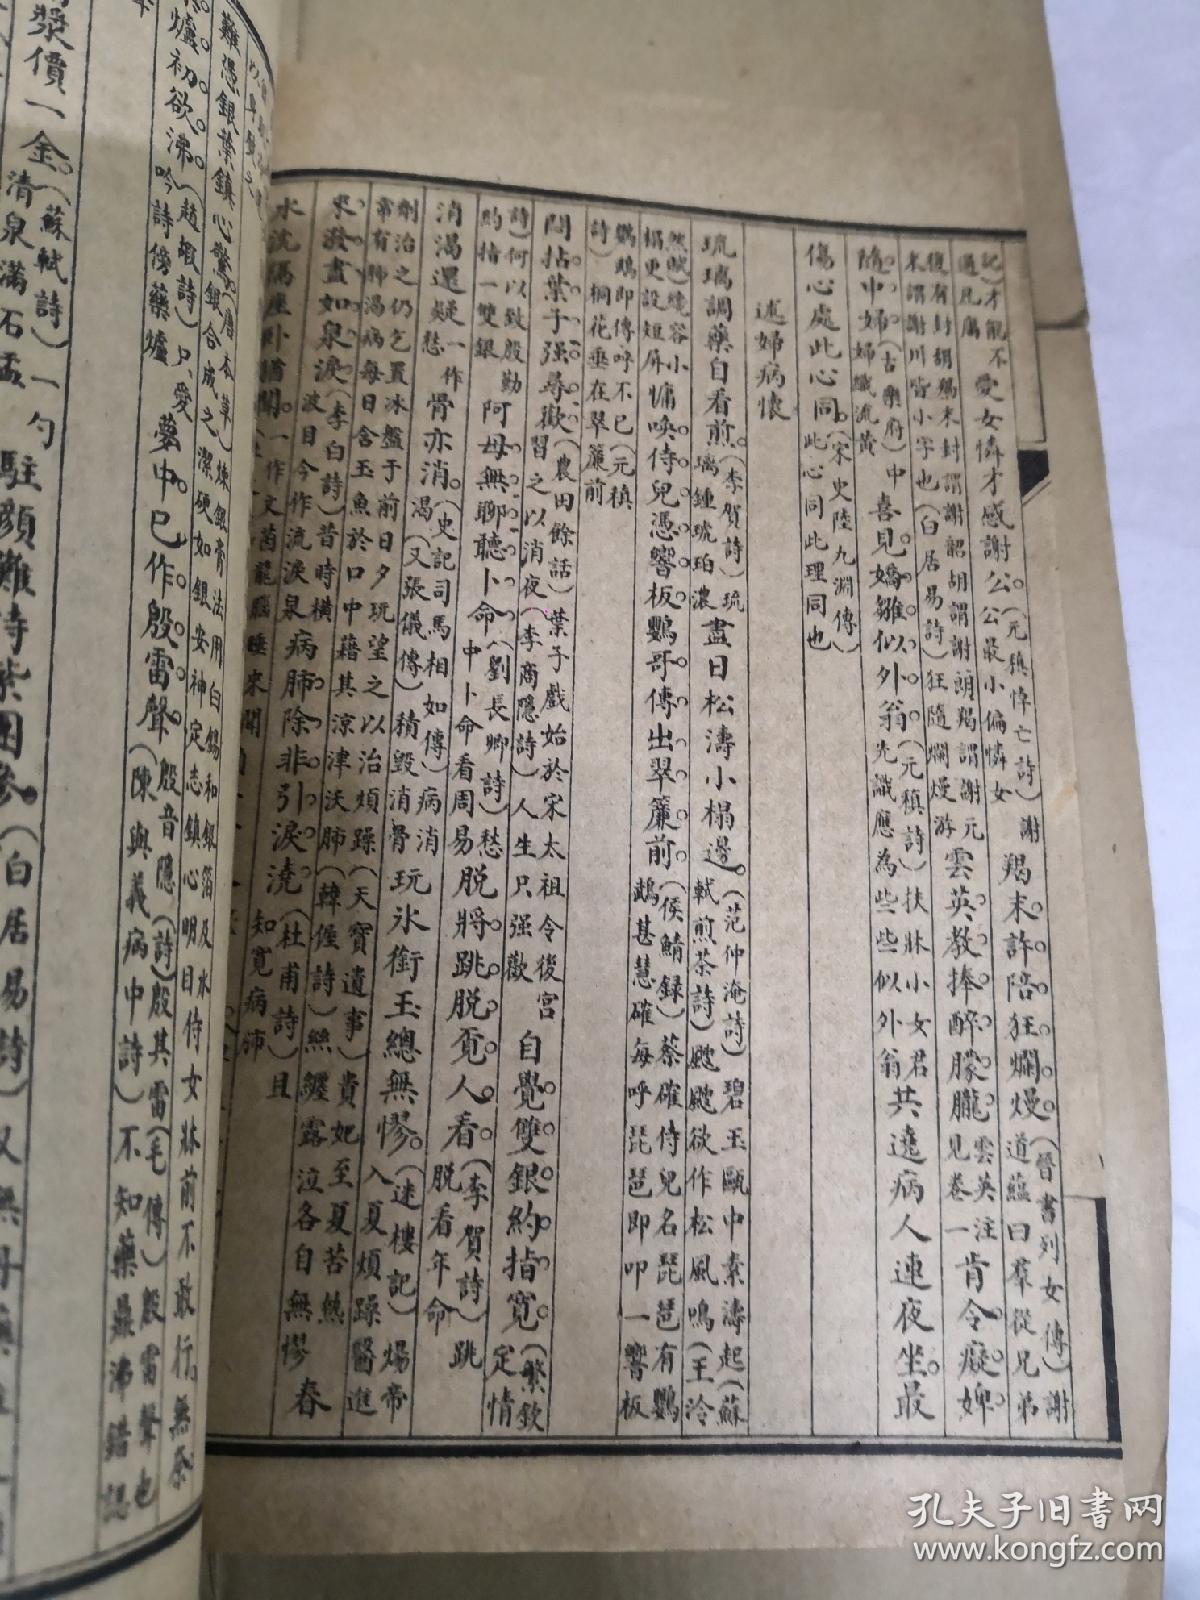 記)才能不愛女憐才感謝公。(元稹悼亡詩)謝公最小偏憐女 羯末許陪狂爛熳。(晉書列女傳)謝道蘊曰羣從兄弟
復有封胡羯末封謂謝韶胡謂謝朗羯謂謝元末謂謝川皆小字也(白居易詩)狂隨爛熳游 雲英教捧醉朦朧。雲英注見卷一 肯令癡婢
隨中婦(古樂府)中婦織流黃 喜見嬌雛似外翁。(元稹詩)扶牀小女君先識應為些些似外翁 共遶病人連夜坐。最
傷心處此心同。(宋史陸九淵傳)此心同此理同也
述婦病懷
琉璃調藥自看煎。(李賀詩)琉璃鍾琥珀濃 盡日松濤小榻邊。(范仲淹詩)碧玉甌中素濤起(蘇軾煎茶詩)颼颼欲作松風鳴(王泠
然賦)繞容小榻更設短屏 慵喚侍兒憑響板鸚哥傳出翠簾前。(侯鯖錄)蔡確侍兒名琵琶有鸚鵡甚慧確每呼琵琶即叩一響板
鸚鵡即傳呼不已(元稹詩)桐花垂在翠簾前
悶拈葉子强尋歡(農田餘話)葉子戲始於宋太祖令後宮習之以消夜(李商隱詩)人生只强歡 自覺雙銀約指寬。(繁欽定情
詩)何以致殷勤約指一雙銀 阿母無聊聽卜命(劉長卿詩)愁中卜命看周易 脫將跳脫覔人看。(李賀詩)跳脫看年命
消渴還疑一作愁骨亦消。(史記司馬相如傳)病消渴(又張儀傳)積毀消骨 玩氷銜玉總無憀。(迷樓記)煬帝入夏煩躁醫進
劑治之仍乞置冰盤于前日夕玩望之以治煩躁(天寶遺事)貴妃至夏苦熱常有肺渴病每日含玉魚於口中藉其涼津沃肺(韓偓詩)絲纏露泣各自無憀 春
來潑盡如泉淚(李白詩)昔時橫波目今作流淚泉 病肺除非引淚澆。(杜甫詩)且知寬病肺
水沈隔座卧猶聞。一作文茵龍腦睡來聞
難憑銀葉鎮心驚。(唐本草)煉銀膏法用白錫和銀箔及水銀合成之潔硬如銀安神定志鎮心明目 侍女牀前不敢行。無奈
爐初欲沸。(趙嘏詩)只愛吟詩傍藥爐 夢中已作殷雷聲。殷音隱(詩)殷其雷(毛傳)殷雷聲也(陳與義病中詩)不知藥鼎沸錯認
漿價一金。(蘇軾詩)一勺清泉滿石盂 駐顏難恃紫團參。(白居易詩)又無丹藥
孔夫子旧书网
www.kongfz.com